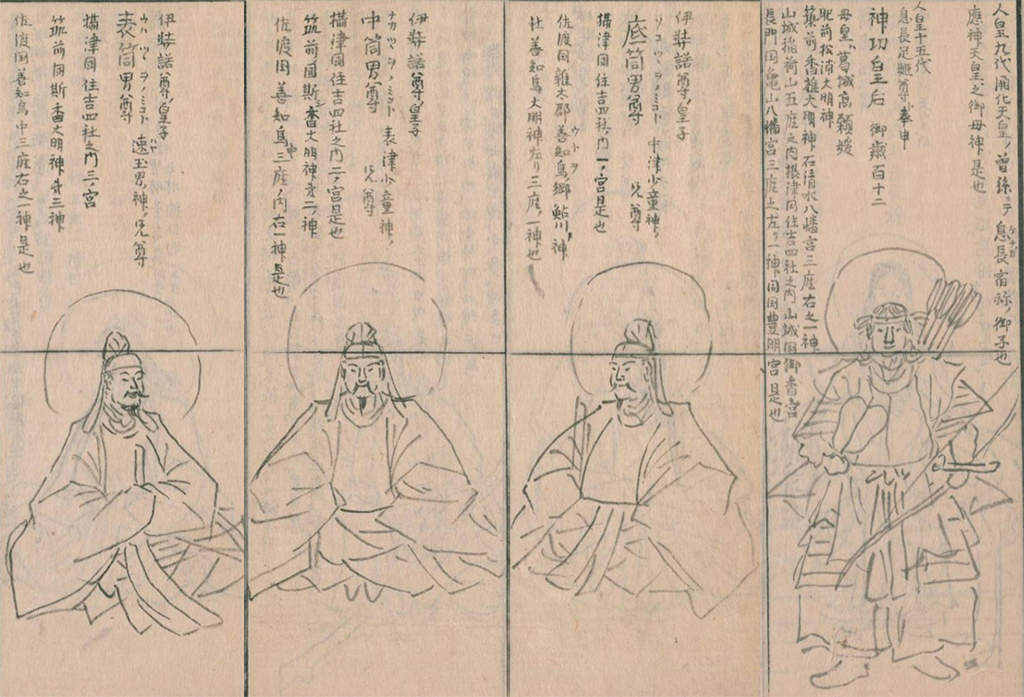 人皇九代開化天皇ノ曽孫ニテ息長宿祢ノ御子也
ケナガ
應神天皇之御母神是也
人皇十五代
息長足姫尊ト奉申
神功皇后 御歳百十二
母皇ハ葛城高額媛
肥前松浦大明神
筑前香椎大明神石清水八幡宮三座右之一神
山城稲荷山五座之内摂津国住吉四社之内山城国御香宮
長門国亀山八幡宮三座之左リ一神同国豊明宮是也
伊弉諾尊ノ皇子
ソコツヽヲノミコト 中津少童神ノ
底筒男尊 児尊
摂津国住吉四社ノ内一ノ宮是也
佐渡国雑太郡善知鳥郷鮎川ノ神
ウトヲ
社善知鳥大明神左リ三座ノ一神也
伊弉諾尊ノ皇子
ナカツヽヲノミコト 表津少童神ノ
中筒男尊 児尊
摂津国住吉四社之内二ノ宮是也
筑前国斯香大明神第二ノ神
佐渡国善知鳥中三座ノ内右一神是也
伊弉諾尊ノ皇子
ウハツヽヲノミコト 速玉男ノ神ノ児尊
表筒男尊
摂津国住吉四社之内三ノ宮
筑前国斯香大明神第三神
佐渡国善知鳥中三座右之一神是也